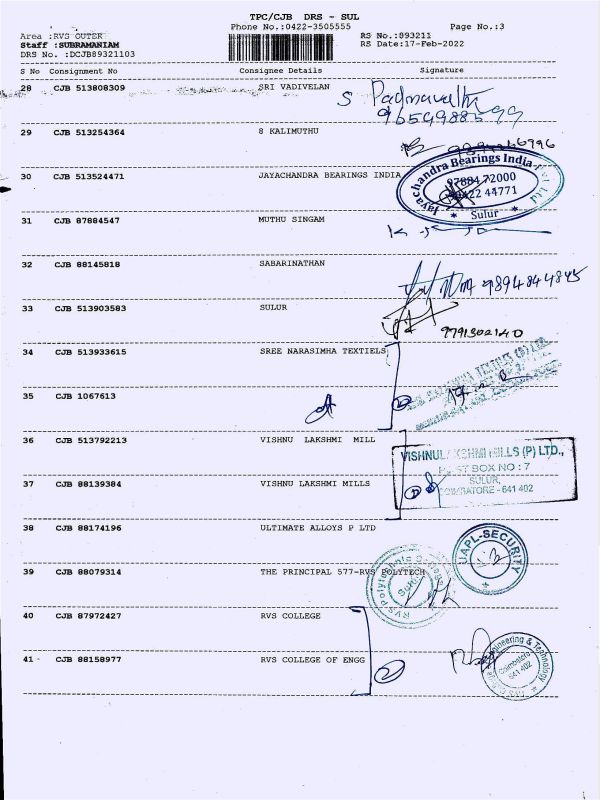 TPC/CJB DRS - SUL
Phone No.:0422-3505555 Page No.:3
Area :RVS OUTER RS No.:893211
Staff :SUBRAMANIAM RS Date:17-Feb-2022
DRS No. :DCJB89321103
S No Consignment No Consignee Details Signature
28 CJB 513808309 SRI VADIVELAN
S Padmavathi
29 CJB 513254364 S KALIMUTHU
30 CJB 513524471 JAYACHANDRA BEARINGS INDIA
Jayachandra Bearings India Pvt Ltd
97884 72000
0422 44771
* Sulur *
31 CJB 87884547 MUTHU SINGAM
32 CJB 88145818 SABARINATHAN
9894844845
33 CJB 513903583 SULUR
9791302140
34 CJB 513933615 SREE NARASIMHA TEXTIELS
35 CJB 1067613
36 CJB 513792213 VISHNU LAKSHMI MILL
VISHNULAKSHMI MILLS (P) LTD.,
POST BOX NO : 7
SULUR,
COIMBATORE - 641 402
37 CJB 88139384 VISHNU LAKSHMI MILLS
38 CJB 88174196 ULTIMATE ALLOYS P LTD
UAPL-SECURITY
39 CJB 88079314 THE PRINCIPAL 577-RVS POLYTECH
RVS Polytechnic College
Sulur
40 CJB 87972427 RVS COLLEGE
2
41 CJB 88158977 RVS COLLEGE OF ENGG
Engineering & Technology
Coimbatore
641 402